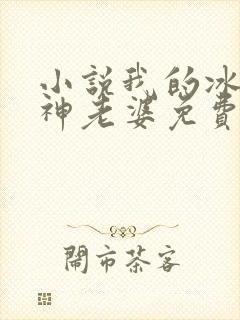 小說我的冰
神老婆免費
閙市茶客